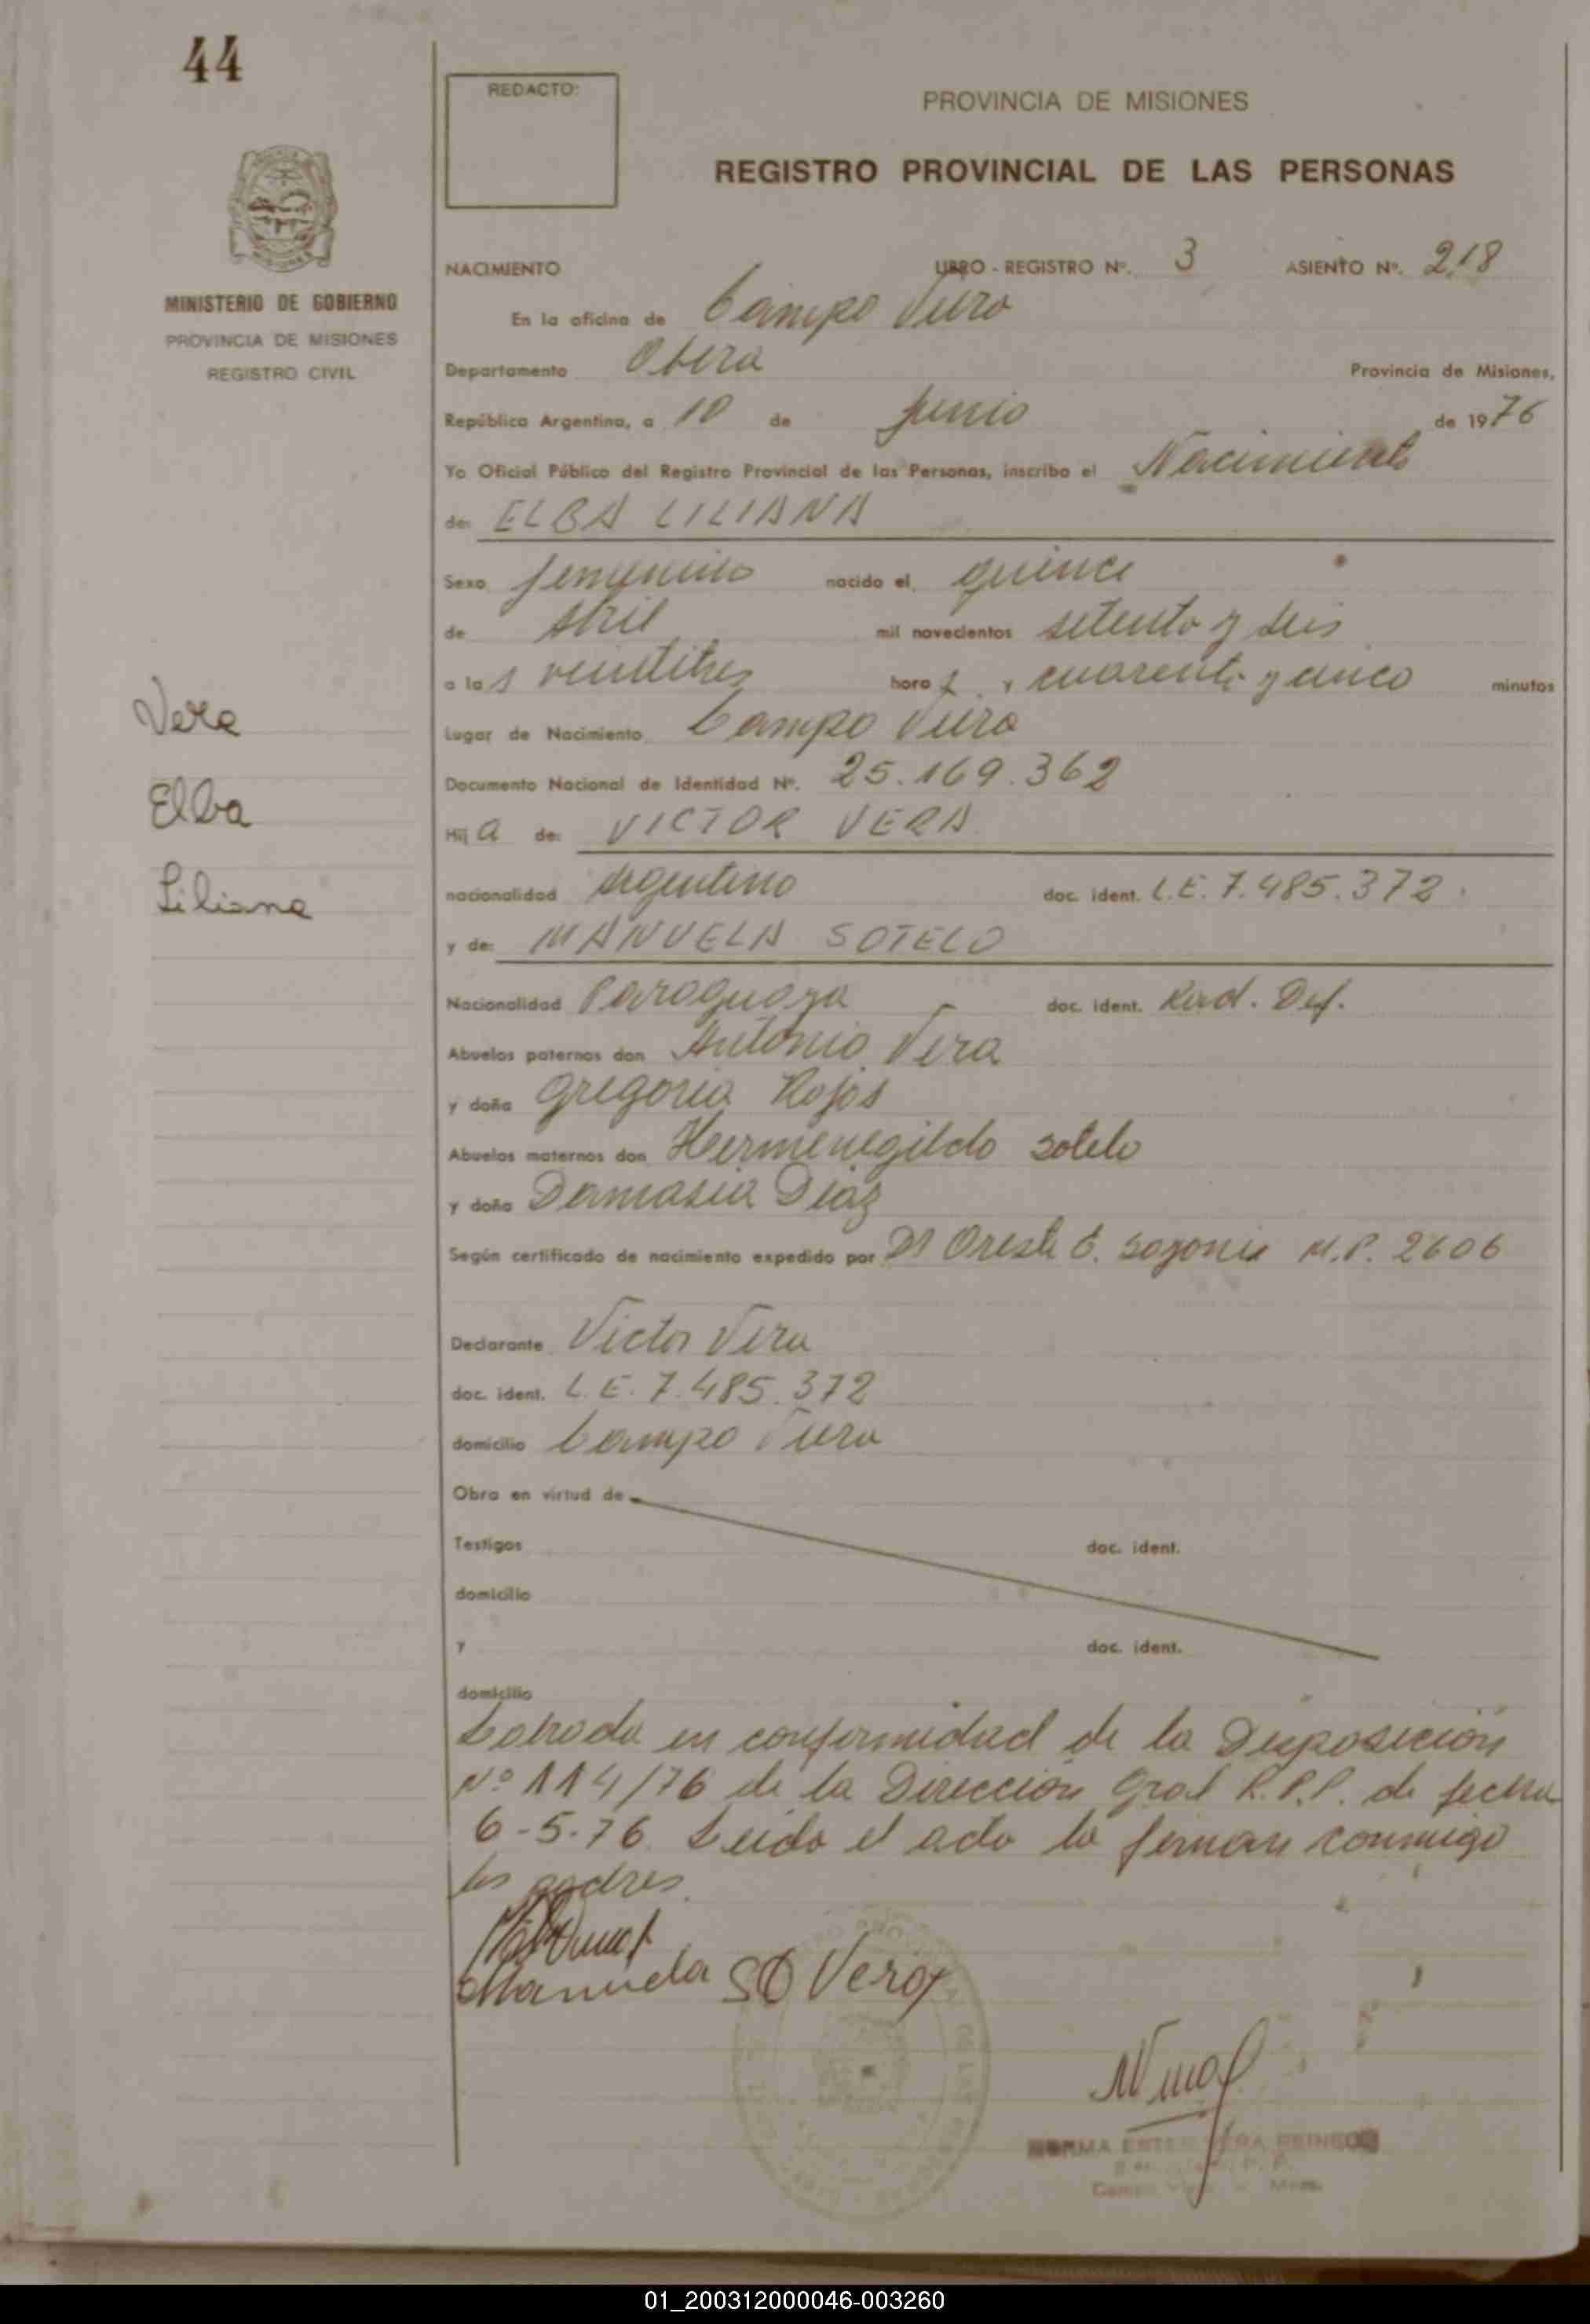 44
REDACTO:
PROVINCIA DE MISIONES
REGISTRO PROVINCIAL DE LAS PERSONAS
MINISTERIO DE GOBIERNO
PROVINCIA DE MISIONES
REGISTRO CIVIL
NACIMIENTO LIBRO - REGISTRO Nº. 3 ASIENTO Nº. 218
En la oficina de Campo Viera
Departamento Oberá Provincia de Misiones,
República Argentina, a 10 de Junio de 1976
Yo Oficial Público del Registro Provincial de las Personas, inscribo el Nacimiento
de: ELBA LILIANA
Sexo femenino nacido el, quince
de Abril mil novecientos setenta y seis
a las veintitres horas, y cuarenta y cinco minutos
Lugar de Nacimiento Campo Viera
Documento Nacional de Identidad Nº. 25.169.362
Hija de: VICTOR VERA
nacionalidad Argentino doc. ident. L.E. 7.485.372.
y de: MANUELA SOTELO
Nacionalidad Paraguaya doc. ident. Rad. Def.
Abuelos paternos don Antonio Vera
y doña Gregoria Rojas
Abuelos maternos don Hermenegildo Sotelo
y doña Damasia Diaz
Según certificado de nacimiento expedido por Dr Oreste E. M.P. 2606
Declarante Victor Vera
doc. ident. L.E. 7.485.372
domicilio Campo Viera
Obra en virtud de
Testigos doc. ident.
domicilio
y doc. ident.
domicilio
Labrada en conformidad de la Disposición
Nº 114/76 de la Dirección Gral R.P.P. de fecha
6-5-76. Leida el acta la firman conmigo
los padres.
Manuela SO Vera
NORMA ESTER VERA
Vera
Elba
Liliana
01_200312000046-003260